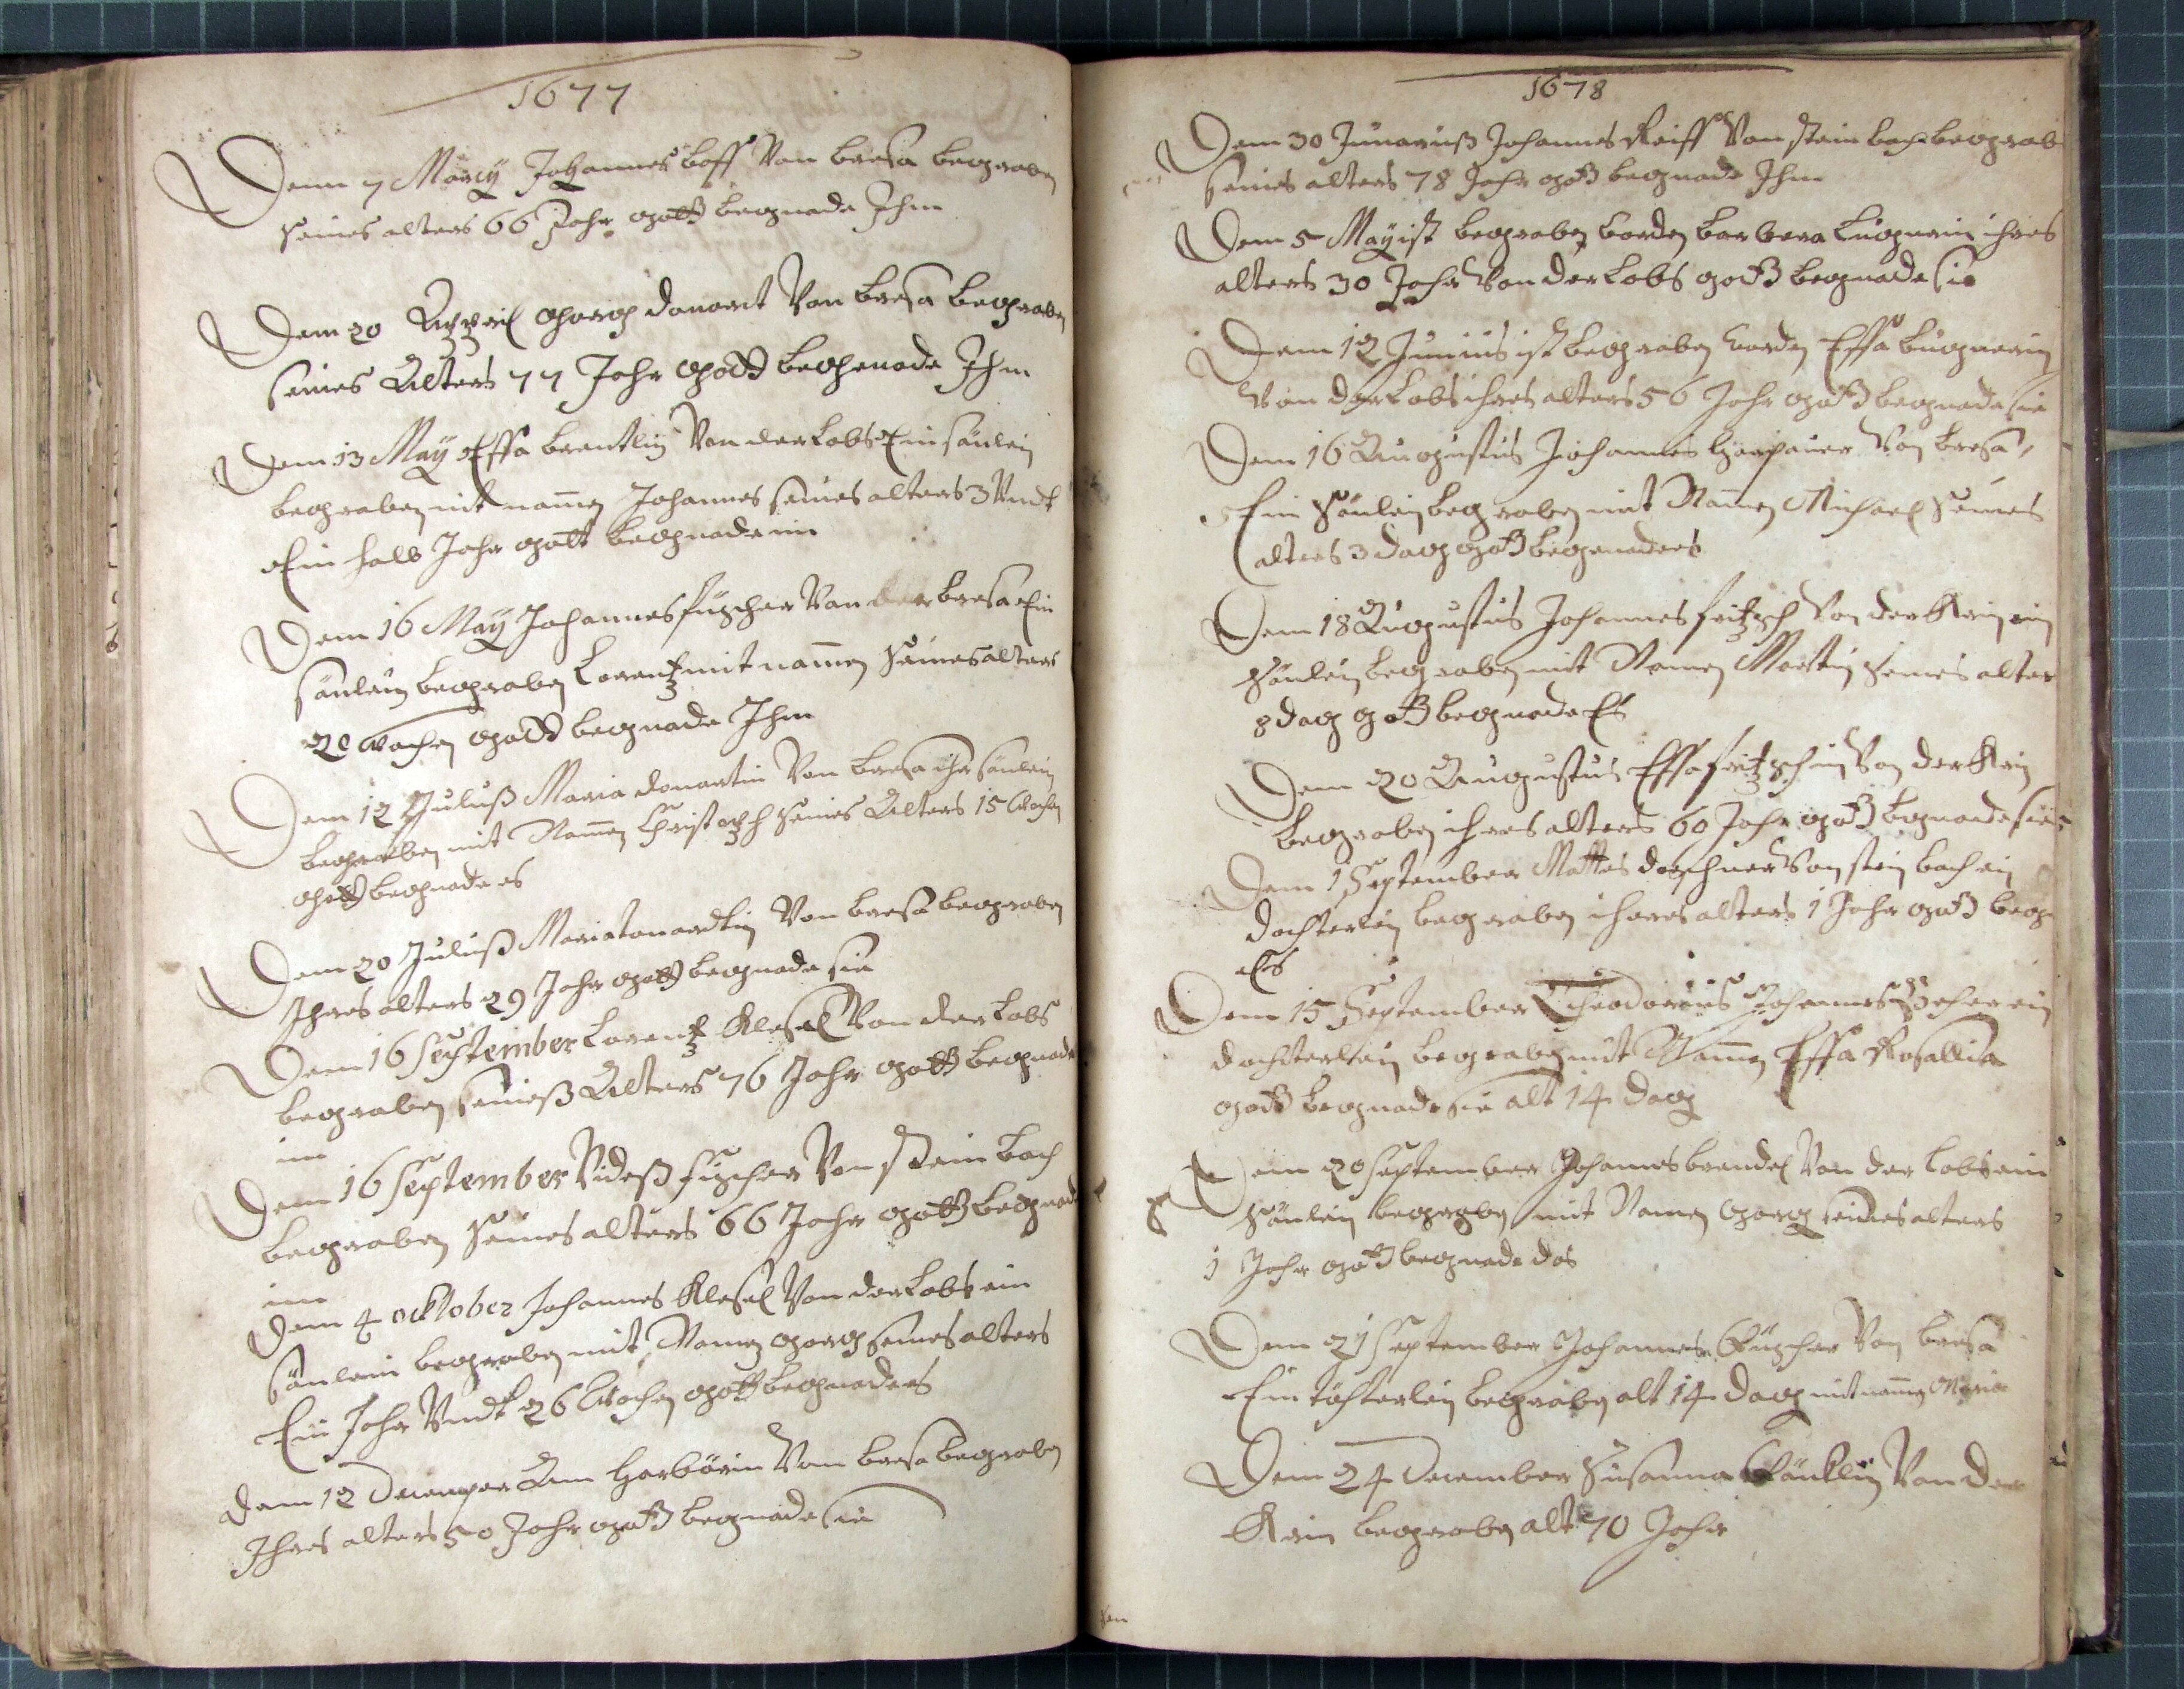 1677
Denn 7 Marcÿ Johannes boss Von bresa begraben
seines alters 66 Johr gott begnade Jhm
Dem 20 Apprill georg donart Von bresa begraben
seines Alters 77 Johr gott begenade Jhm
Dem 13 Maÿ Effa brentlin Von der Lobs Ein sönlein
begraben mit namen Johannes seines alters 3 Vndt
Ein halb Johr gott begnade im
Dem 16 Maÿ Johannes fuscher Von der bresa Ein
sönlein begraben Lorentz mit namen seines alters
20 wochen gott begnade Jhm
Dem 12 Juluß Maria donartin Von bresa ihr sönlein
begraben mit Namen Christoph seines Alters 15 Wochen
gott begnade es
Dem 20 Juluß Maria tonardtin Von bresa begraben
Jhres alters 29 Johr gott begnade sie
Dem 16 September Lorentz Klesel Von der Lobs
begraben seineß Alters 76 Johr gott begnade
im
Dem 16 September Videß fischer Von stein bach
begraben seines alters 66 Johr gott begnade
im
Dem 4 ocktober Johannes Klesel Von der Lobs ein
sönlein begraben mit Namen georg seines alters
Ein Johr Vndt 26 Wochen gott begnade es
Dem 12 Decemper Ann Von bresa begraben
Jhres alters 50 Johr gott begnade sie
1678
Dem 30 Junaruß Johannes Reiff Von stein bach begrab
seines alters 78 Johr gott begnade Jhm
Dem 5 Maÿ ist begraben worden barbera ihres
alters 30 Johr Von der Lobs gott begnade sie
Dem 12 Junius ist begraben worden Effa
Von der Lobs ihres alters 56 Johr gott begnade sie
Dem 16 Augustus Johannes Von bresa
Ein sönlein begraben mit Namen Michael seines
alters 3 dag gott begenade es
Dem 18 Augustus Johannes fritzsch Von der Krin ein
sönlein begraben mit Namen Martin seines alter
8 dag gott begnade Es
Dem 20 Augustus Effa fritzschin Von der Krin
begraben ihres alters 60 Johr gott begnade sie
Dem 1 September Mattes Von stein bach ein
dochterlein begraben ihres alters 1 Johr gott beg
Es
Dem 15 September Theodorius Johannes ein
dochterlein begraben mit Namen Effa Rosallia
gott begnade sie alt 14 dag
Dem 20 September Johannes brendel Von der Lobs ein
sönlein begraben mit Namen georg seines alters
1 Johr gott begnade das
Dem 21 September Johannes Von bresa
Ein töchterlein begraben alt 14 dag mit namen Maria
Dem 24 December Susanna Von der
Krin begraben alt 70 Johr